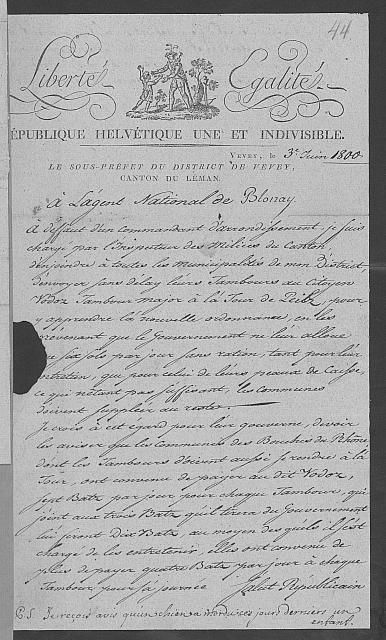 44
Liberté, Egalité.
ÉPUBLIQUE HELVÉTIQUE UNE ET INDIVISIBLE.
VEVEY, le 3e Juin 1800.
LE SOUS-PRÉFET DU DISTRICT DE VEVEY,
CANTON DU LÉMAN.
À L'agent National de Blonay.
À deffaut d'un commandant d'arrondissement, je suis
chargé par l'Inspecteur des Milices du Canton,
d'enjoindre à toutes les municipalités de mon District
d'envoyer sans délay leurs Tambours au Citoyen
Vodoz Tambour major à la Tour de Peilz, pour
y apprendre la nouvelle ordonnance, en les
prévenant que le Gouvernement ne leur alloue
six sols par jour sans ration, tant pour leur
entretien, que pour celui de leurs peaux de Caisse,
ce qui n'étant pas suffisant, les Communes
doivent suppléer au reste.
Je crois à cet egard pour leur gouverne, devoir
les aviser que les Communes des Bouches du Rhône,
dont les Tambours doivent aussi se rendre à la
Tour, ont convenu de payer au dit Vodoz,
sept Batz par jour pour chaque Tambour, qui
joint aux trois Batz qu'il tirera du Gouvernement
lui feront Dix Batz, au moyen des quels il s'est
chargé de les entretenir, elles ont convenu de
plus de payer quatre Batz par jour à chaque
Tambour pour sa journée Salut Républicain
P.S. Je reçois avis qu'un chien a mordu ces jours derniers un
enfant.